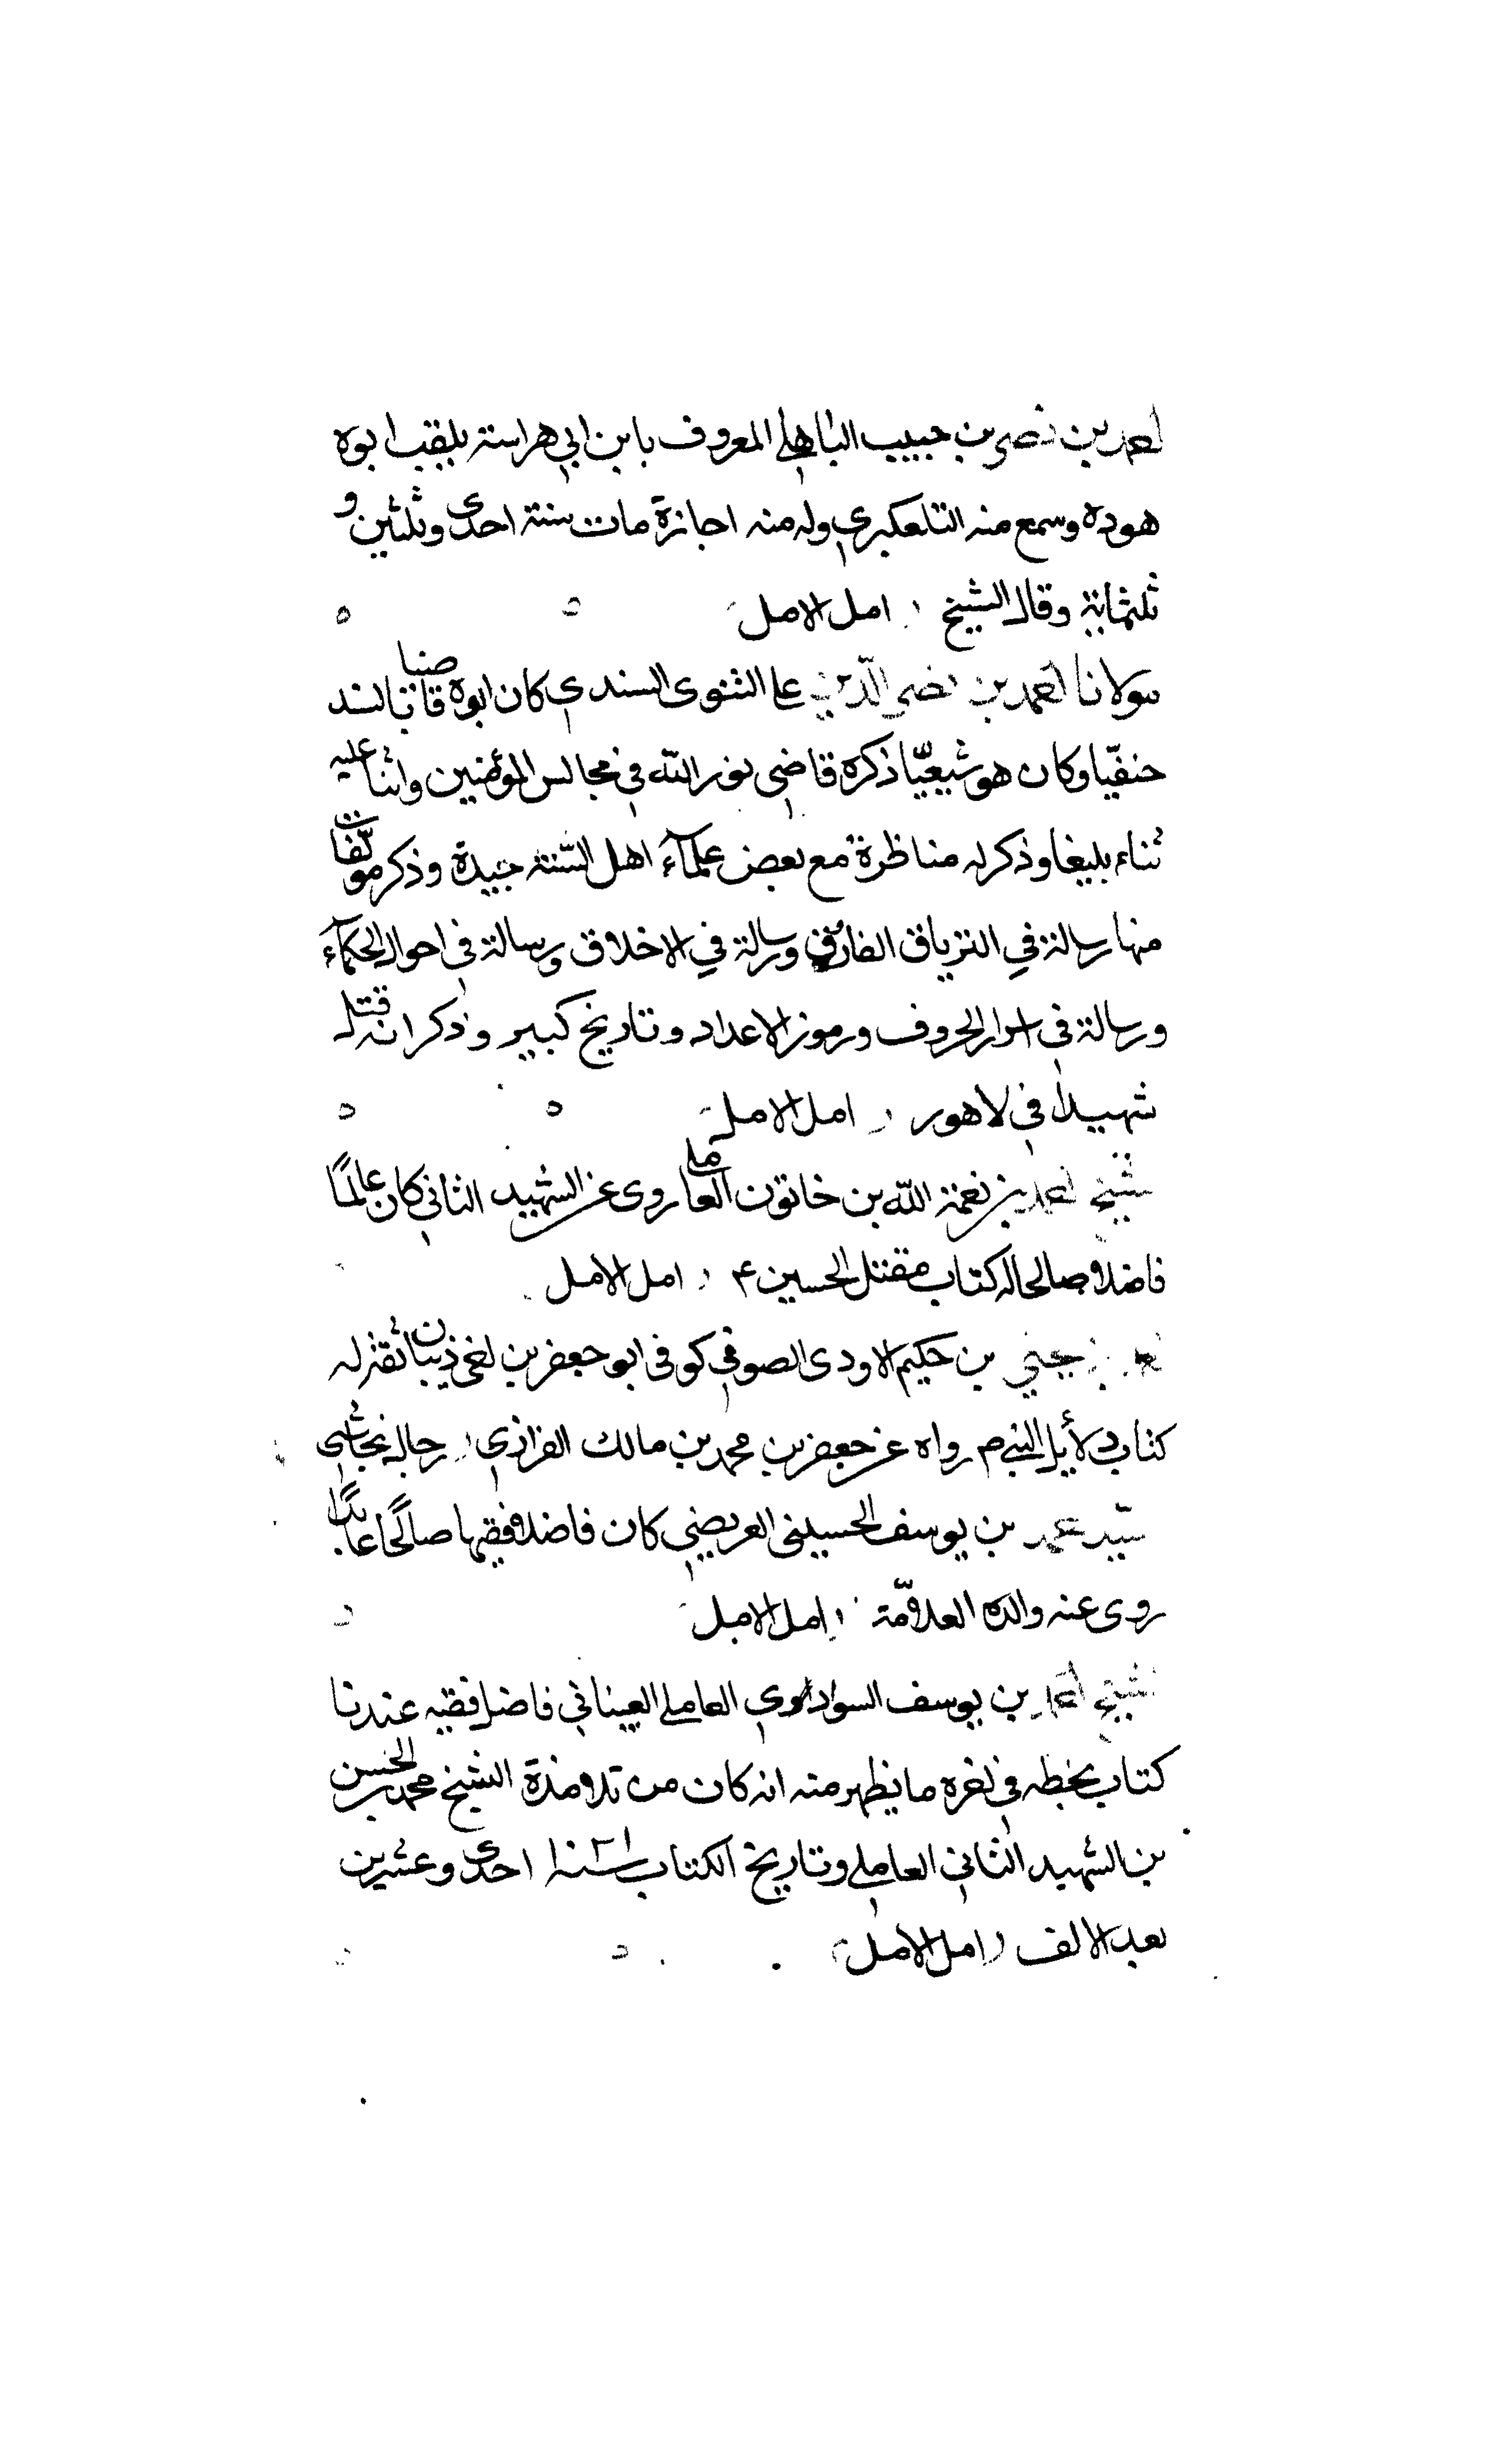 احمد بن نصر بن حبيب الباهلي المعروف بابن ابي هراسة يلقب ابوه
هوذه وسمع منه التلعكبري وله منه اجازة مات سنة احدى وثلثين و
ثلثمائة وقال الشيخ امل الامل
مولانا احمد بن نصر الدين علي التتوى السندي كان ابوه قاضيا تابالسند
حنفيّا وكان هو شيعيّا ذكره قاضي نور الله في مجالس المؤمنين واثنا عليه
ثناء بليغا وذكر له مناظرة مع بعض علمآء اهل السّنة جيدة وذكر مولّفات
منها رسالة في الترياق الفاروقي ورسالة في الاخلاق ورسالة في احوال الحكمآء
ورسالة في اسرار الحروف ورموز الاعداد وتاريخ كبير وذكر انه قتل
شهيدا في لاهور امل الامل
شيخ احمد بن نعمة الله بن خاتون العاملي روى عن الشهيد الثاني كان عالمًا
فاضلا صالحا له كتاب مقتل الحسين ع امل الامل
احمد بن يحيى بن حكيم الاودي الصوفي كوفي ابو جعفر بن اخي ذبيان ثقة له
كتاب دلأيل النبي ص رواه عن جعفر بن محمد بن مالك الفزاري رجال نجاشي
سيّد احمد بن يوسف الحسيني العريضي كان فاضلا فقيها صالحًا عابدًا
روى عنه والده العلاّمة امل الامل
شيخ احمد بن يوسف السوادي العاملي العيناثي فاضل فقيه عندنا
كتاب بخطه في اخره ما يظهر منه انه كان من تلامذة الشيخ محمد بن الحسن
بن الشهيد الثاني العاملي وتاريخ الكتاب سنة احدى وعشرين
بعد الالف امل الامل